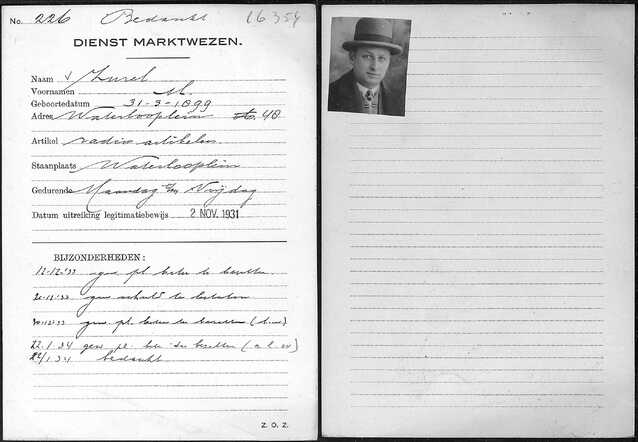 No. 226 Bedankt 16354
DIENST MARKTWEZEN.
Naam v Zurel
Voornamen M.
Geboortedatum 31-3-1899
Adres Waterlooplein 40
Artikel radio artikelen
Staanplaats Waterlooplein
Gedurende Maandag t/m Vrijdag
Datum uitreiking legitimatiebewijs 2 NOV. 1931
BIJZONDERHEDEN:
12-12-'33 gew. pl. beter te bezetten
20-12-'33 gew. schuld te betalen
gew. pl. beter te bezetten
22.1.34 gew. pl. bezetten
22/1.34 bedankt
Z. O. Z.